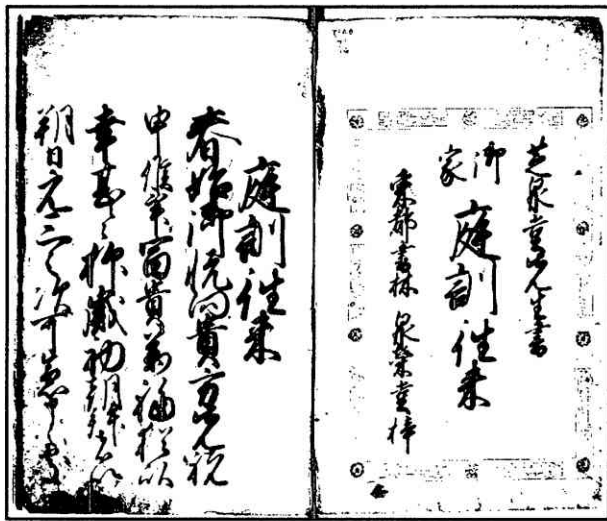 芝泉堂先生書
御家
庭訓往来
東都書林 泉栄堂梓
庭訓往来
春始御悦向貴方先祝
申候畢富貴万福猶以
幸甚々抑歳初朝拝者以
朔日元三之次可急申之処